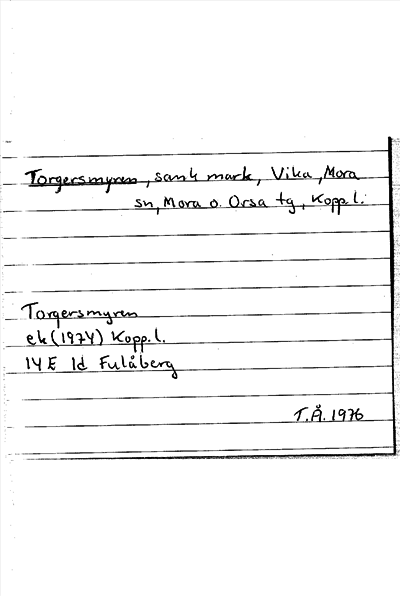 Torgersmyren, sank mark, Vika, Mora
sn, Mora o. Orsa tg, Kopp.l.
Torgersmyren
ek (1974) Kopp.l.
14 E 1d Fulåberg
T.Å. 1976